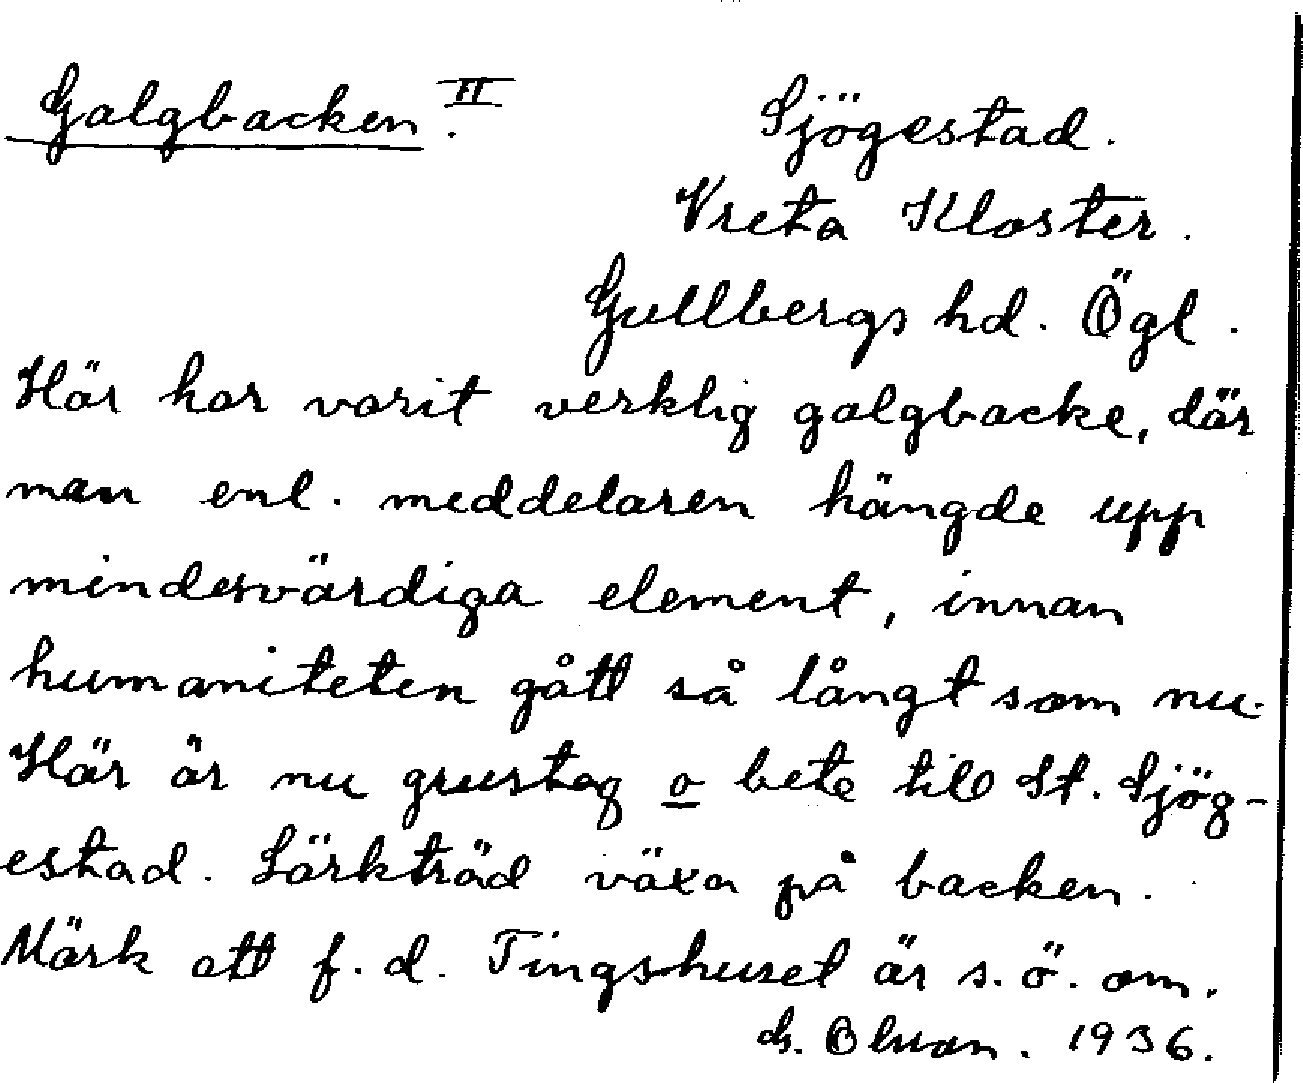 Galgbacken. II
Sjögestad.
Vreta Kloster.
Gullbergs hd. Ögl.
Här har varit verklig galgbacke, där
man enl. meddelaren hängde upp
mindervärdiga element, innan
humaniteten gått så långt som nu.
Här är nu grustag o bete till St. Sjög-
estad. Lärkträd växa på backen.
Märk att f.d. Tingshuset är s.ö. om.
1936.